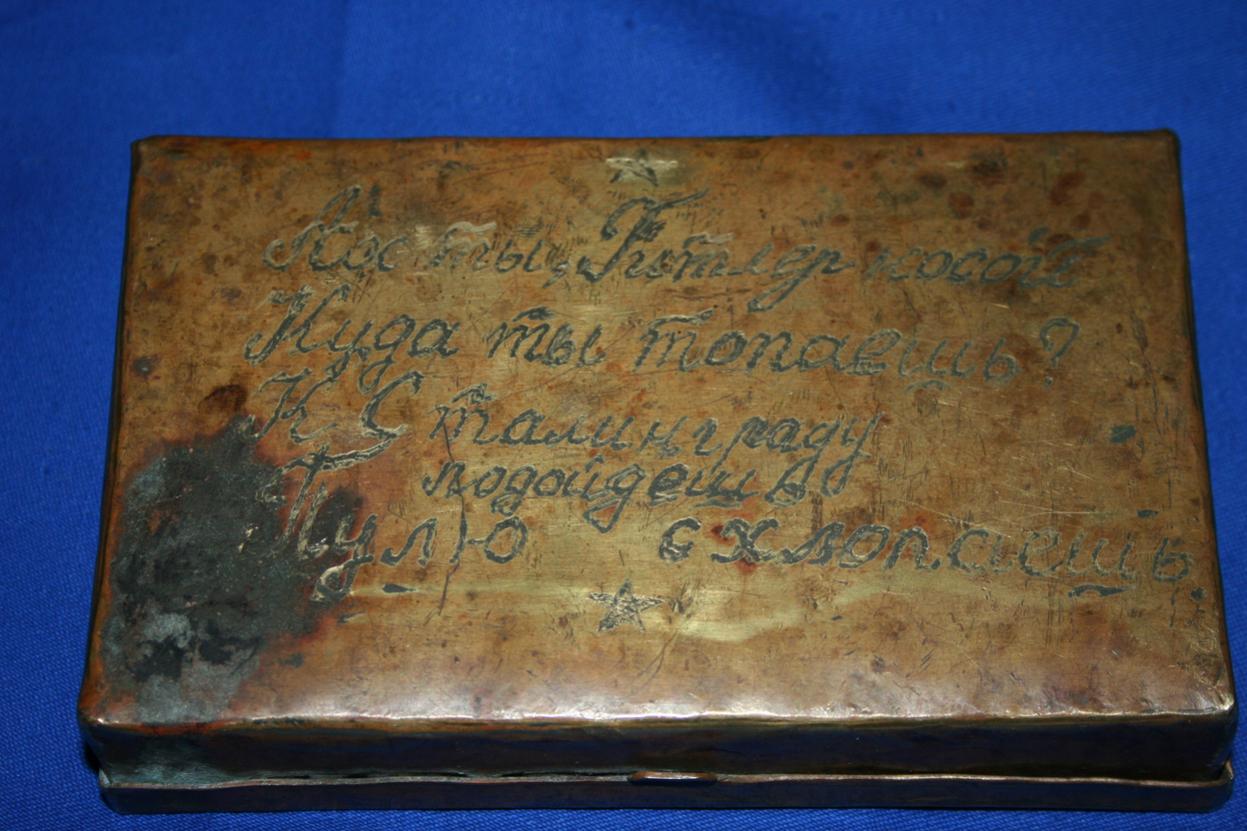 Ах ты, Гитлер косой
Куда ты топаешь?
К Сталинграду
подойдешь
Пулю схлопаешь.